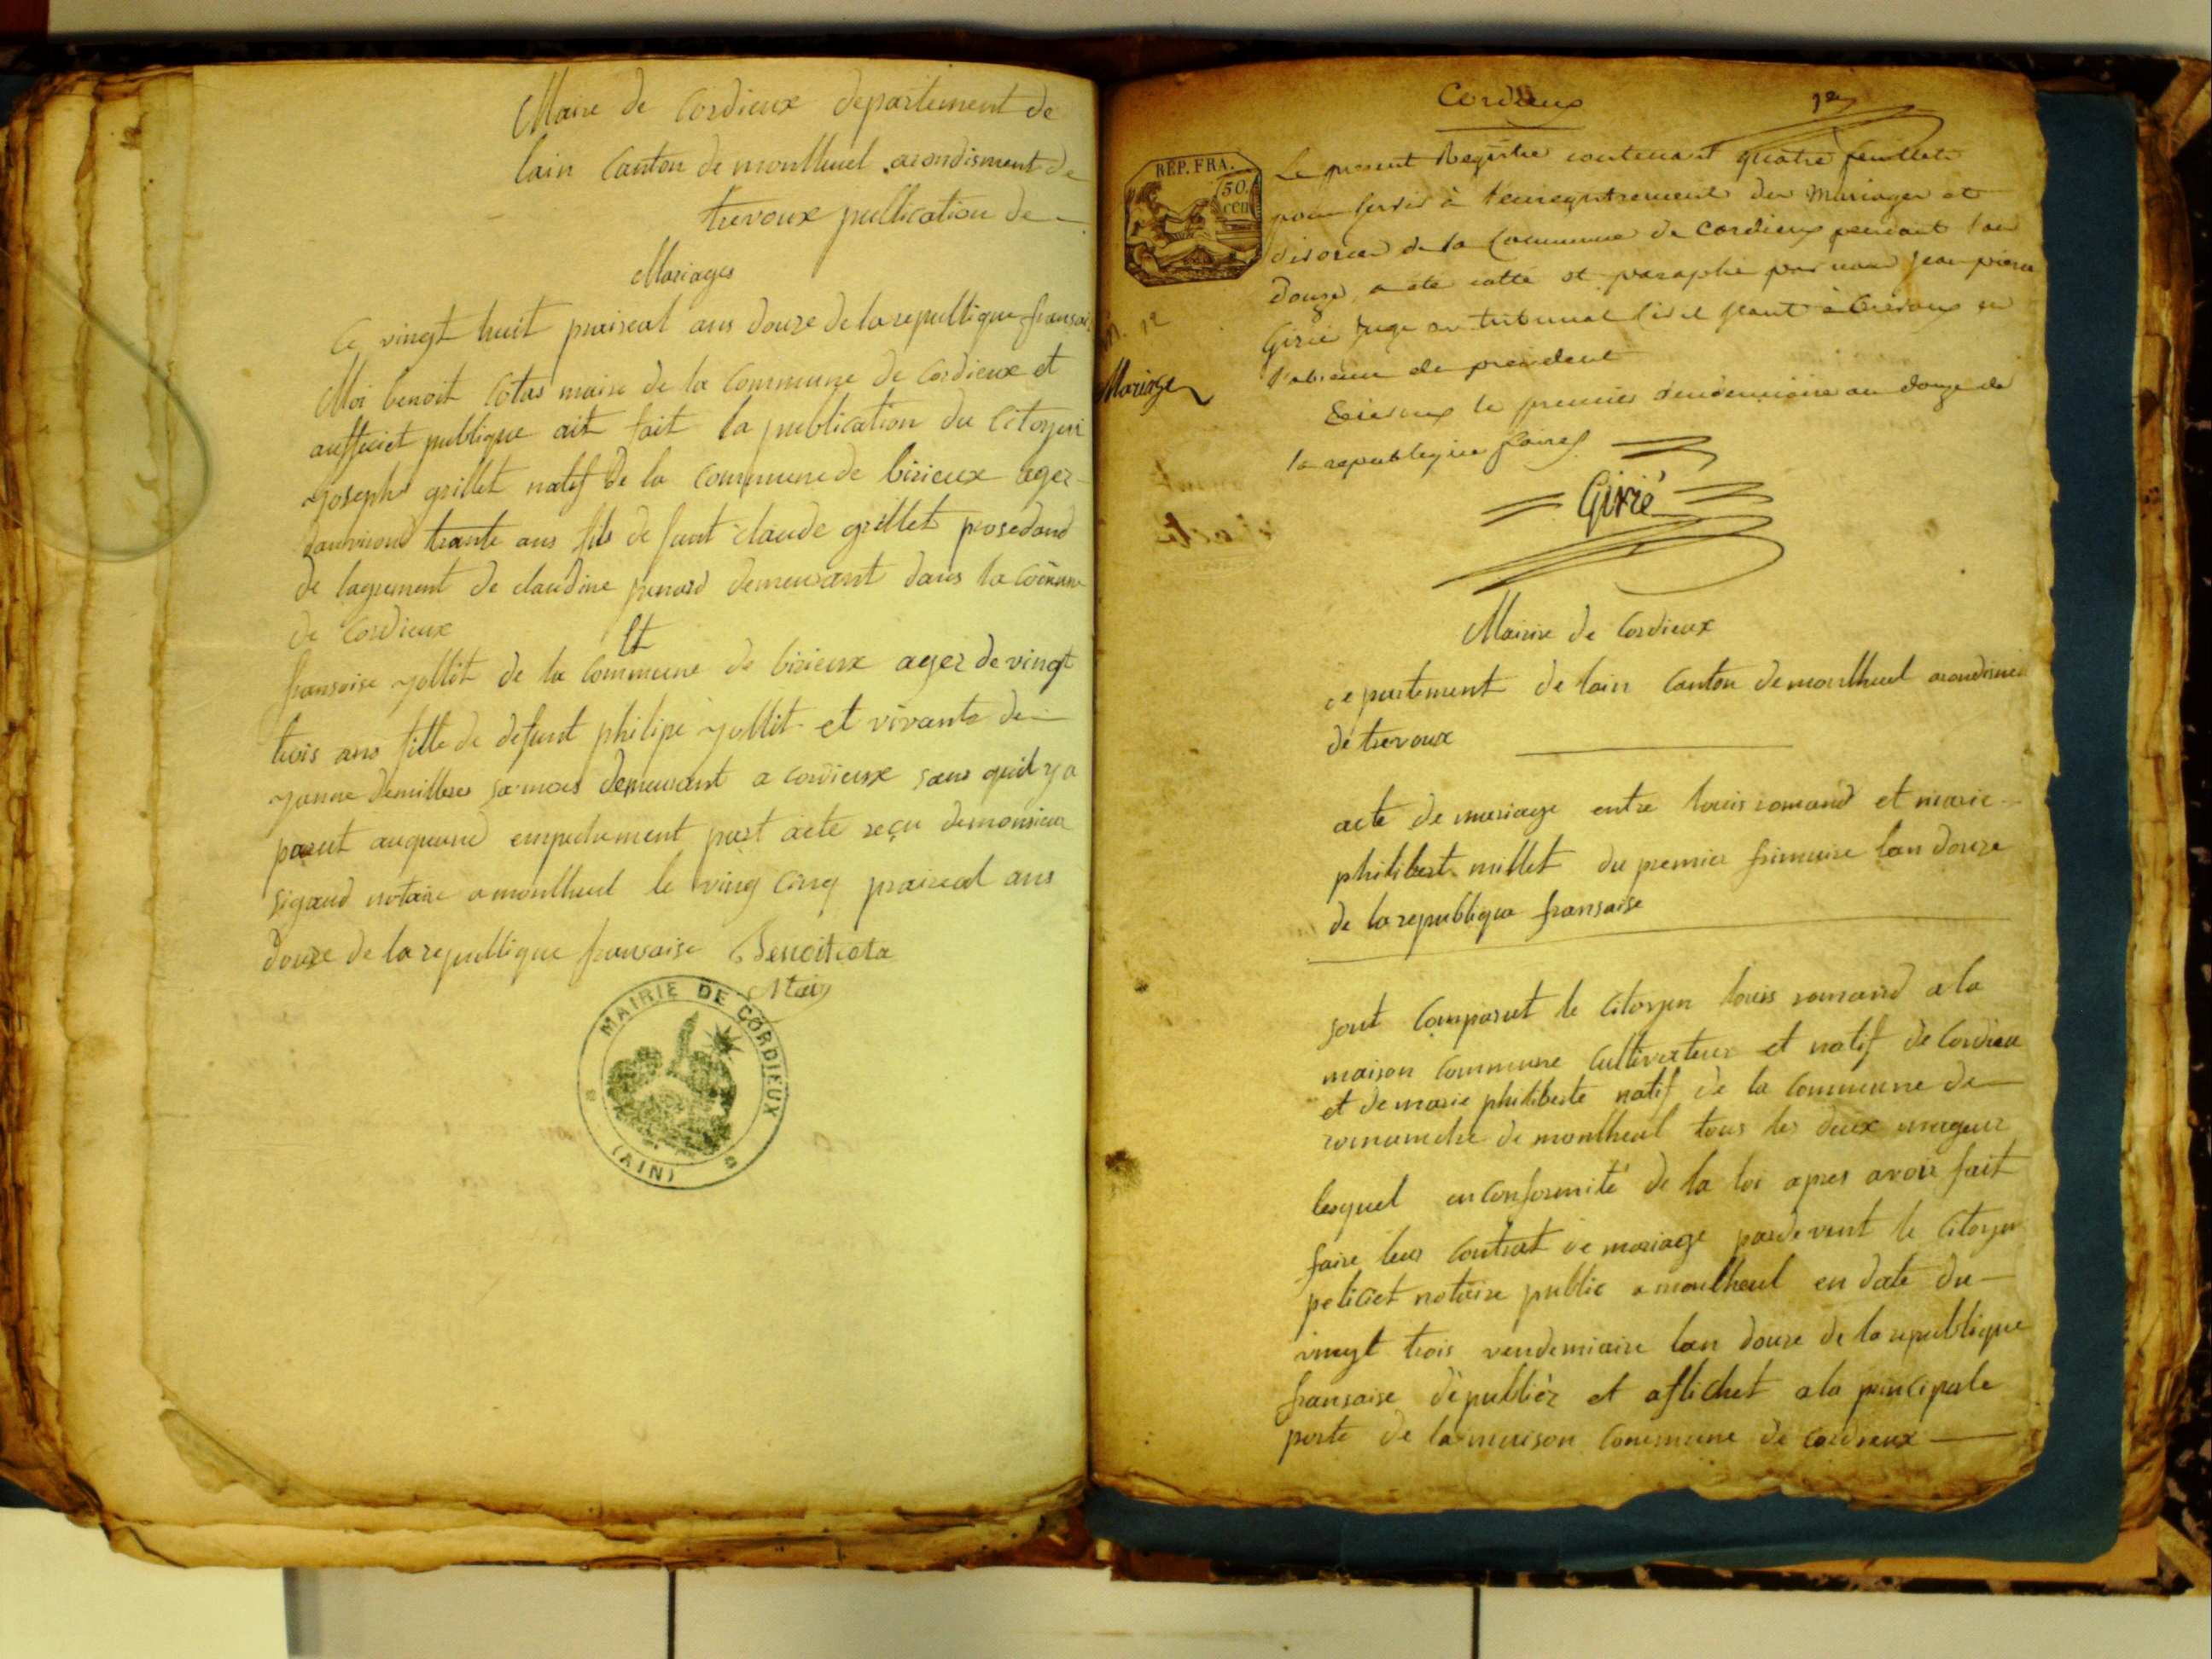 Maire de Cordieux departement de
lain Canton de montluel arondisment de
trevoux publication de
Mariages
Ce vingt huit praireal ans douze de la republique fransai
Moi benoit Cotas maire de la Commune de Cordieux et
aufficiet publique ait fait la publication du Citoyen
joseph grillet natif de la Commune de birieux agez
danviront trante ans fils de funt claude grillet prosedand
de lagrement de claudine demeurant dans la Comune
de Cordieux Et
fransoise jollit de la Commune de birieux agez de vingt
trois ans fille de defunt philipe jollit et vivante de
janne demilleres demeurant a cordieux sans quil y a
parut auquune empechement part acte reçu de monsieur
sigaud notaire a montluel le ving cinq praireal ans
douze de la republique fransaise Benoit cota
Maire
MAIRIE DE CORDIEUX
(AIN)
Cordieux
REP. FRA.
50
cen
Le present Registre contenant quatre feuillets
pour servir à l'enregistrement des Mariages et
divorces de la Commune de Cordieux pendant l'an
douze, a été cotté et paraphé par nous jean pierre
Girié juge au tribunal Civil seant à Trévoux en
l'absence du president
an. 12
Mariage
Trévoux le premier vendemiaire an douze de
la republique
Girié
Mairie de Cordieux
departement de lain Canton de montluel arondisme
de trevoux
acte de mariage entre louis romand et marie
philibert millet du premier frimaire lan douze
de la republique fransaise
sont Comparut le Citoyen louis romand a la
maison Commune Cultivateur et natif de Cordieu
et de marie philiberte natif de la Commune de
romaneche de montluel tous les deux mageur
lesquel en Conformité de la loi apres avoir fait
faire leur Contrat de mariage pardevent le Citoyen
peliciet notaire public a montluel en date du
vingt trois vendemiaire lan douze de la republique
fransaise dépubliér et afflichet a la principale
porte de la maison Commune de Cordieux